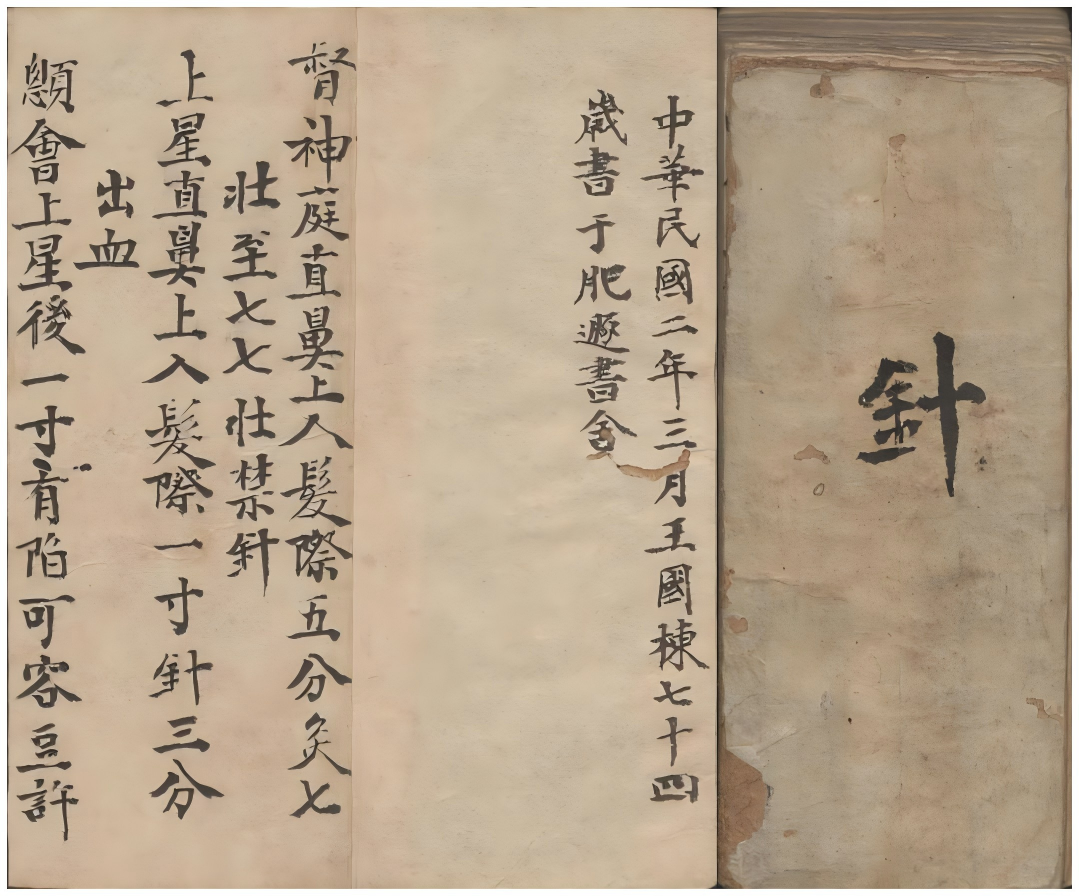 針
中華民國二年三月王國棟七十四
歲書于肥遯書舍
督神葶直鼻上入髮際五分灸七
壯至七七壯禁針
上星直鼻上入髮際一寸針三分
出血
顖會上星後一寸宛宛陷可容豆許